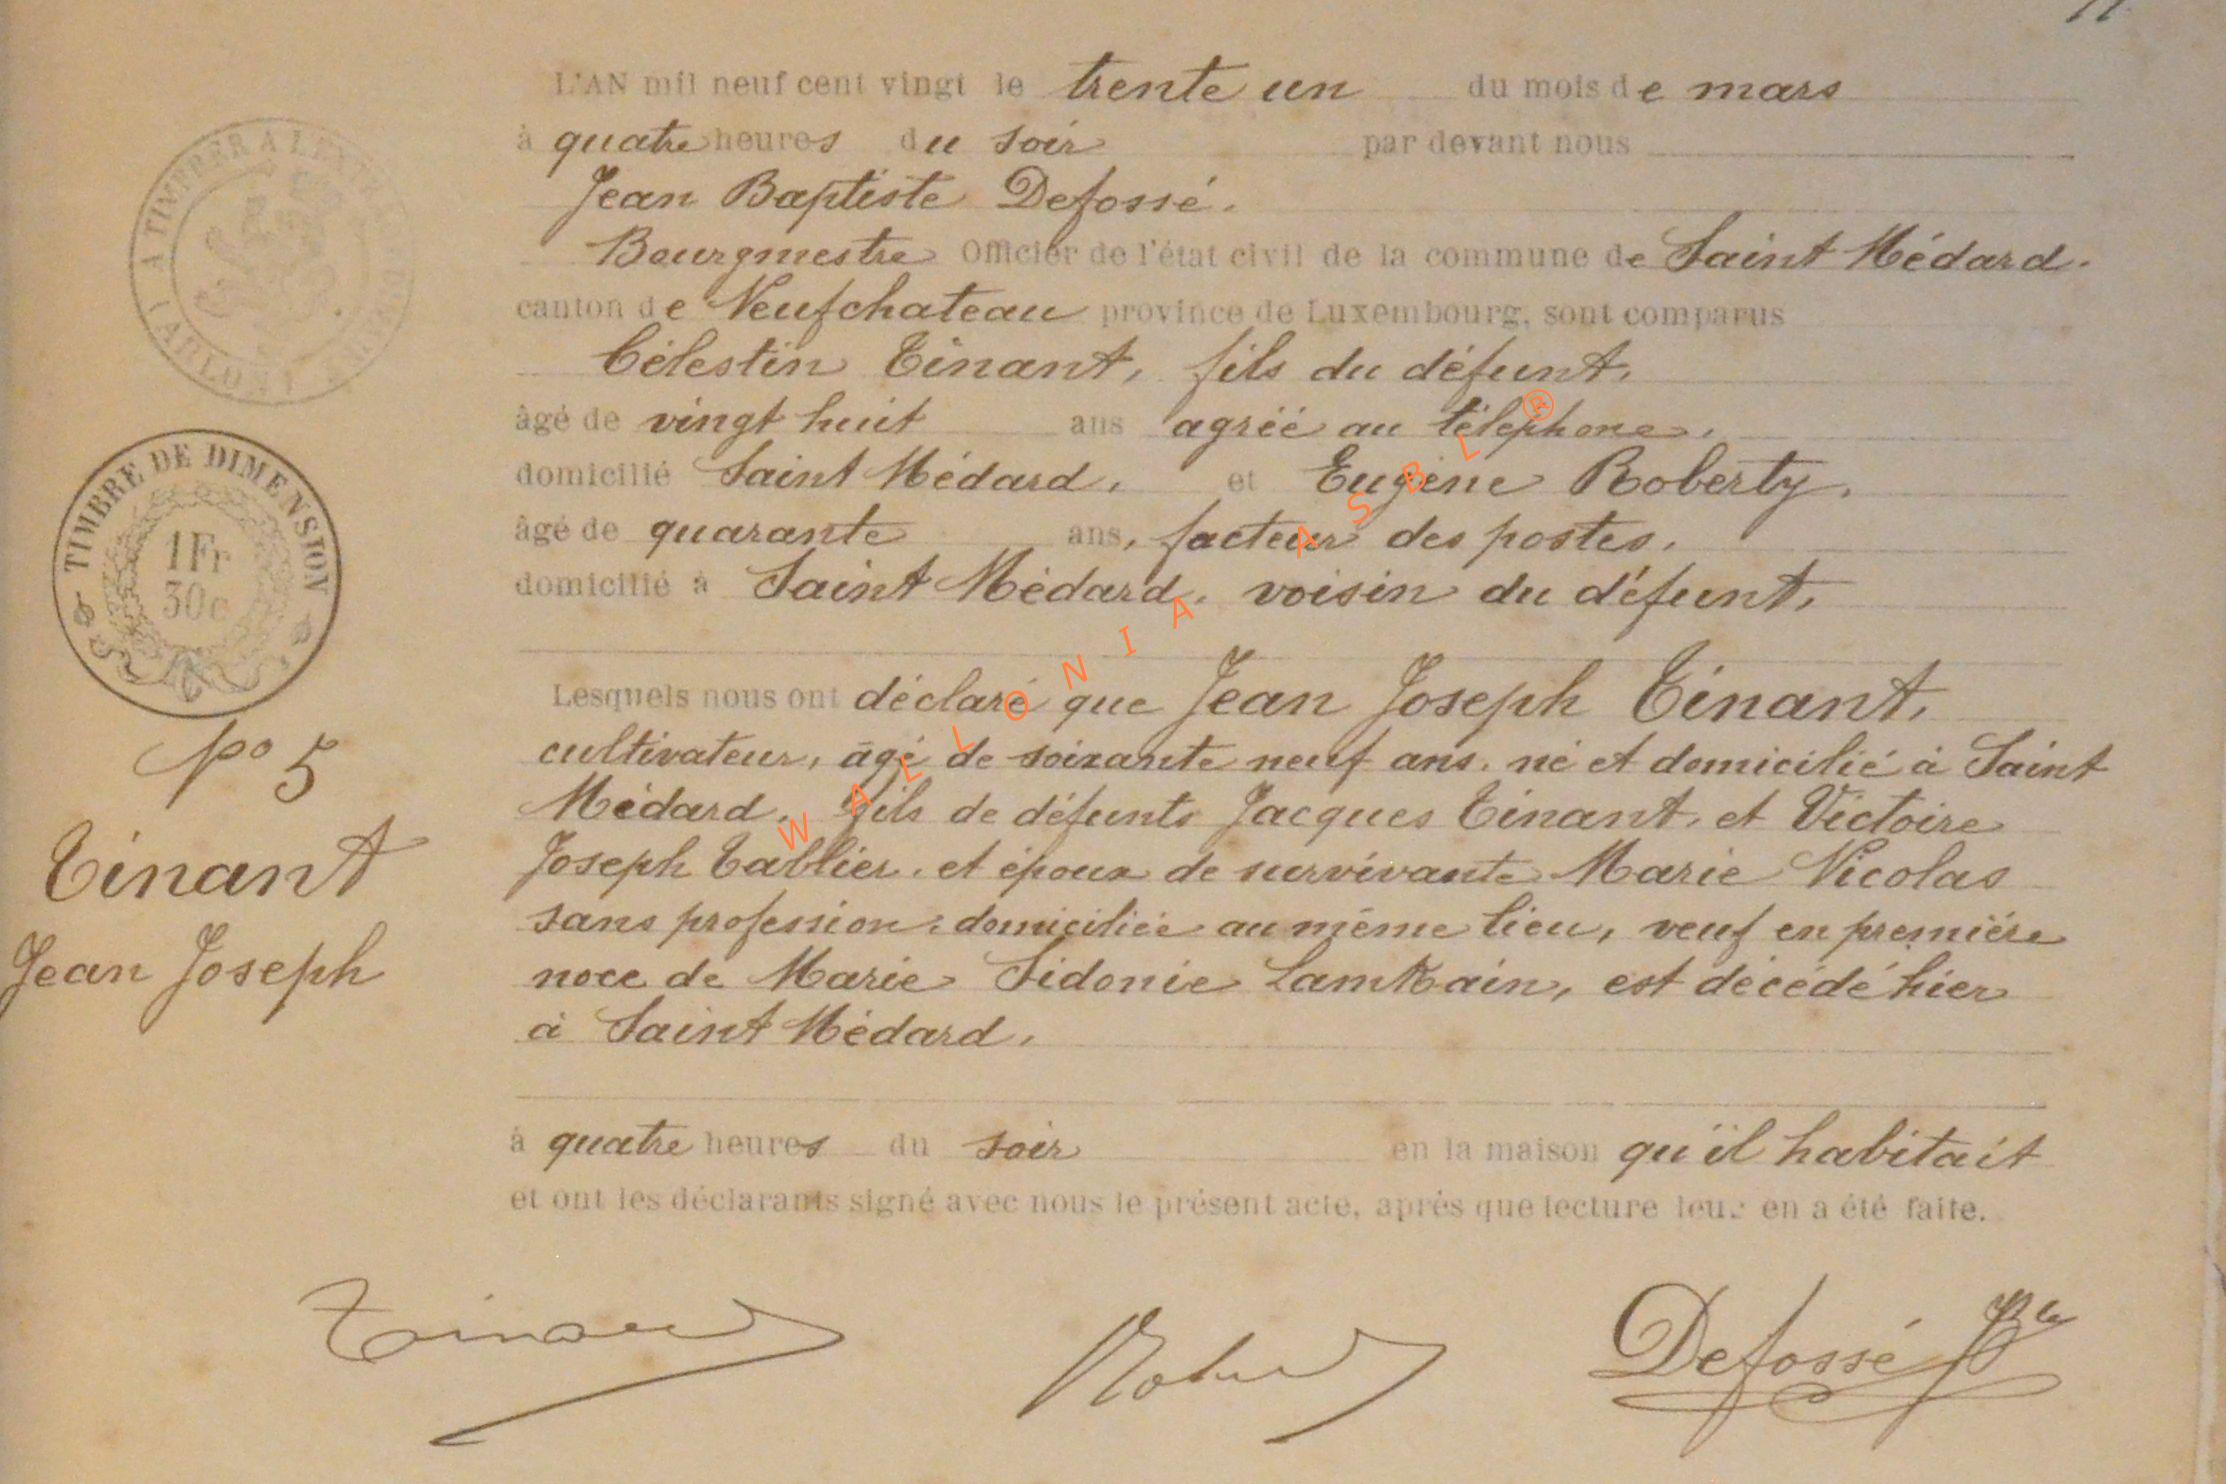 L'AN mil neuf cent vingt le trente un du mois de mars
à quatre heures du soir par devant nous
Jean Baptiste Defossé.
Bourgmestre Officier de l'état civil de la commune de Saint Médard.
canton de Neufchateau province de Luxembourg, sont comparus
Célestin Tinant, fils du défunt,
âgé de vingt huit ans agréé au téléphone,
domicilié Saint Médard, et Eugène Roberty,
âgé de quarante ans, facteur des postes,
domicilié à Saint Médard, voisin du défunt,
Lesquels nous ont déclaré que Jean Joseph Tinant,
cultivateur, âgé de soixante neuf ans, né et domicilié à Saint
Médard, fils de défunts Jacques Tinant, et Victoire
Joseph Tablier, et époux de survivante Marie Nicolas
sans profession, domiciliée au même lieu, veuf en première
noce de Marie Sidonie Lamkain, est décédé hier
à Saint Médard,
à quatre heures du soir en la maison qu'il habitait
et ont les déclarants signé avec nous le présent acte, après que lecture leur en a été faite.
A TIMBRER A L'EXTRA
ARLON
TIMBRE DE DIMENSION
1Fr
30c
No 5
Tinant
Jean Joseph
WALLONIA ASBL ®
Tinant
Defossé JBte